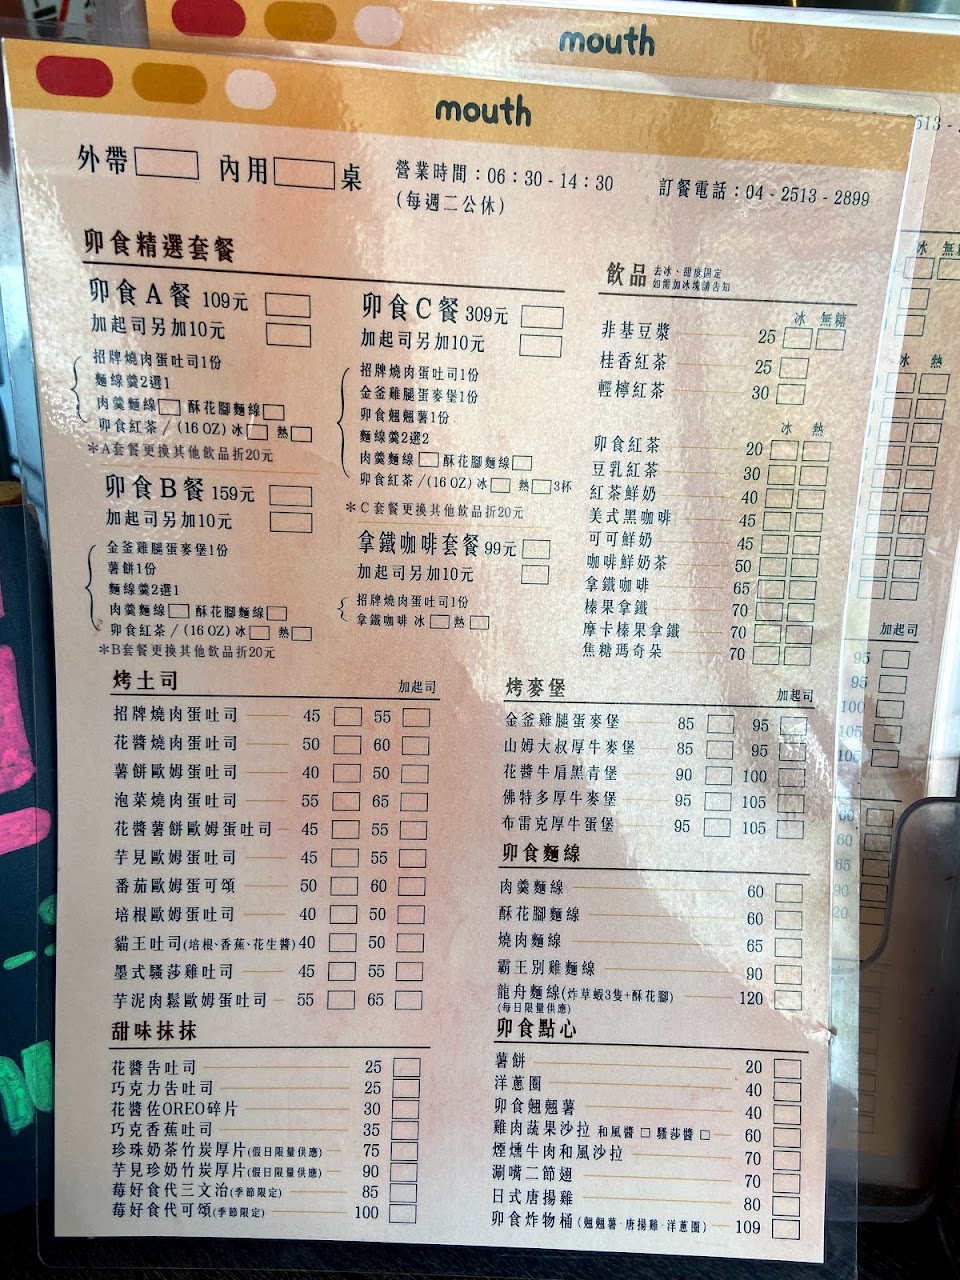 mouth
mouth
外帶 內用 桌
營業時間：06：30 - 14：30
(每週二公休)
訂餐電話：04 - 2513 - 2899
卯食精選套餐
卯食A餐 109元
加起司另加10元
招牌燒肉蛋吐司1份
麵線羹2選1
肉羹麵線 酥花腳麵線
卯食紅茶 / (16 OZ) 冰 熱
＊A套餐更換其他飲品折20元
卯食B餐 159元
加起司另加10元
金釜雞腿蛋麥堡1份
薯餅1份
麵線羹2選1
肉羹麵線 酥花腳麵線
卯食紅茶 / (16 OZ) 冰 熱
＊B套餐更換其他飲品折20元
卯食C餐 309元
加起司另加10元
招牌燒肉蛋吐司1份
金釜雞腿蛋麥堡1份
卯食翹翹薯1份
麵線羹2選2
肉羹麵線 酥花腳麵線
卯食紅茶 / (16 OZ) 冰 熱 3杯
＊C套餐更換其他飲品折20元
拿鐵咖啡套餐 99元
加起司另加10元
招牌燒肉蛋吐司1份
拿鐵咖啡 冰 熱
飲品 去冰、甜度固定
如需加冰塊請告知
冰 無糖
非基豆漿 25
桂香紅茶 25
輕檸紅茶 30
冰 熱
卯食紅茶 20
豆乳紅茶 30
紅茶鮮奶 40
美式黑咖啡 45
可可鮮奶 45
咖啡鮮奶茶 50
拿鐵咖啡 65
榛果拿鐵 70
摩卡榛果拿鐵 70
焦糖瑪奇朵 70
烤土司 加起司
招牌燒肉蛋吐司 45 55
花醬燒肉蛋吐司 50 60
薯餅歐姆蛋吐司 40 50
泡菜燒肉蛋吐司 55 65
花醬薯餅歐姆蛋吐司 45 55
芋見歐姆蛋吐司 45 55
番茄歐姆蛋可頌 50 60
培根歐姆蛋吐司 40 50
貓王吐司(培根、香蕉、花生醬) 40 50
墨式騷莎雞吐司 45 55
芋泥肉鬆歐姆蛋吐司 55 65
甜味抹抹
花醬告吐司 25
巧克力告吐司 25
花醬佐OREO碎片 30
巧克香蕉吐司 35
珍珠奶茶竹炭厚片(假日限量供應) 75
芋見珍奶竹炭厚片(假日限量供應) 90
莓好食代三文治(季節限定) 85
莓好食代可頌(季節限定) 100
烤麥堡 加起司
金釜雞腿蛋麥堡 85 95
山姆大叔厚牛麥堡 85 95
花醬牛肩黑青堡 90 100
佛特多厚牛麥堡 95 105
布雷克厚牛蛋堡 95 105
卯食麵線
肉羹麵線 60
酥花腳麵線 60
燒肉麵線 65
霸王別雞麵線 90
龍舟麵線(炸草蝦3隻+酥花腳) 120
(每日限量供應)
卯食點心
薯餅 20
洋蔥圈 40
卯食翹翹薯 40
雞肉蔬果沙拉 和風醬 騷莎醬 60
煙燻牛肉和風沙拉 70
涮嘴二節翅 70
日式唐揚雞 80
卯食炸物桶(翹翹薯·唐揚雞·洋蔥圈) 109
冰 熱
加起司
95
95
100
105
105